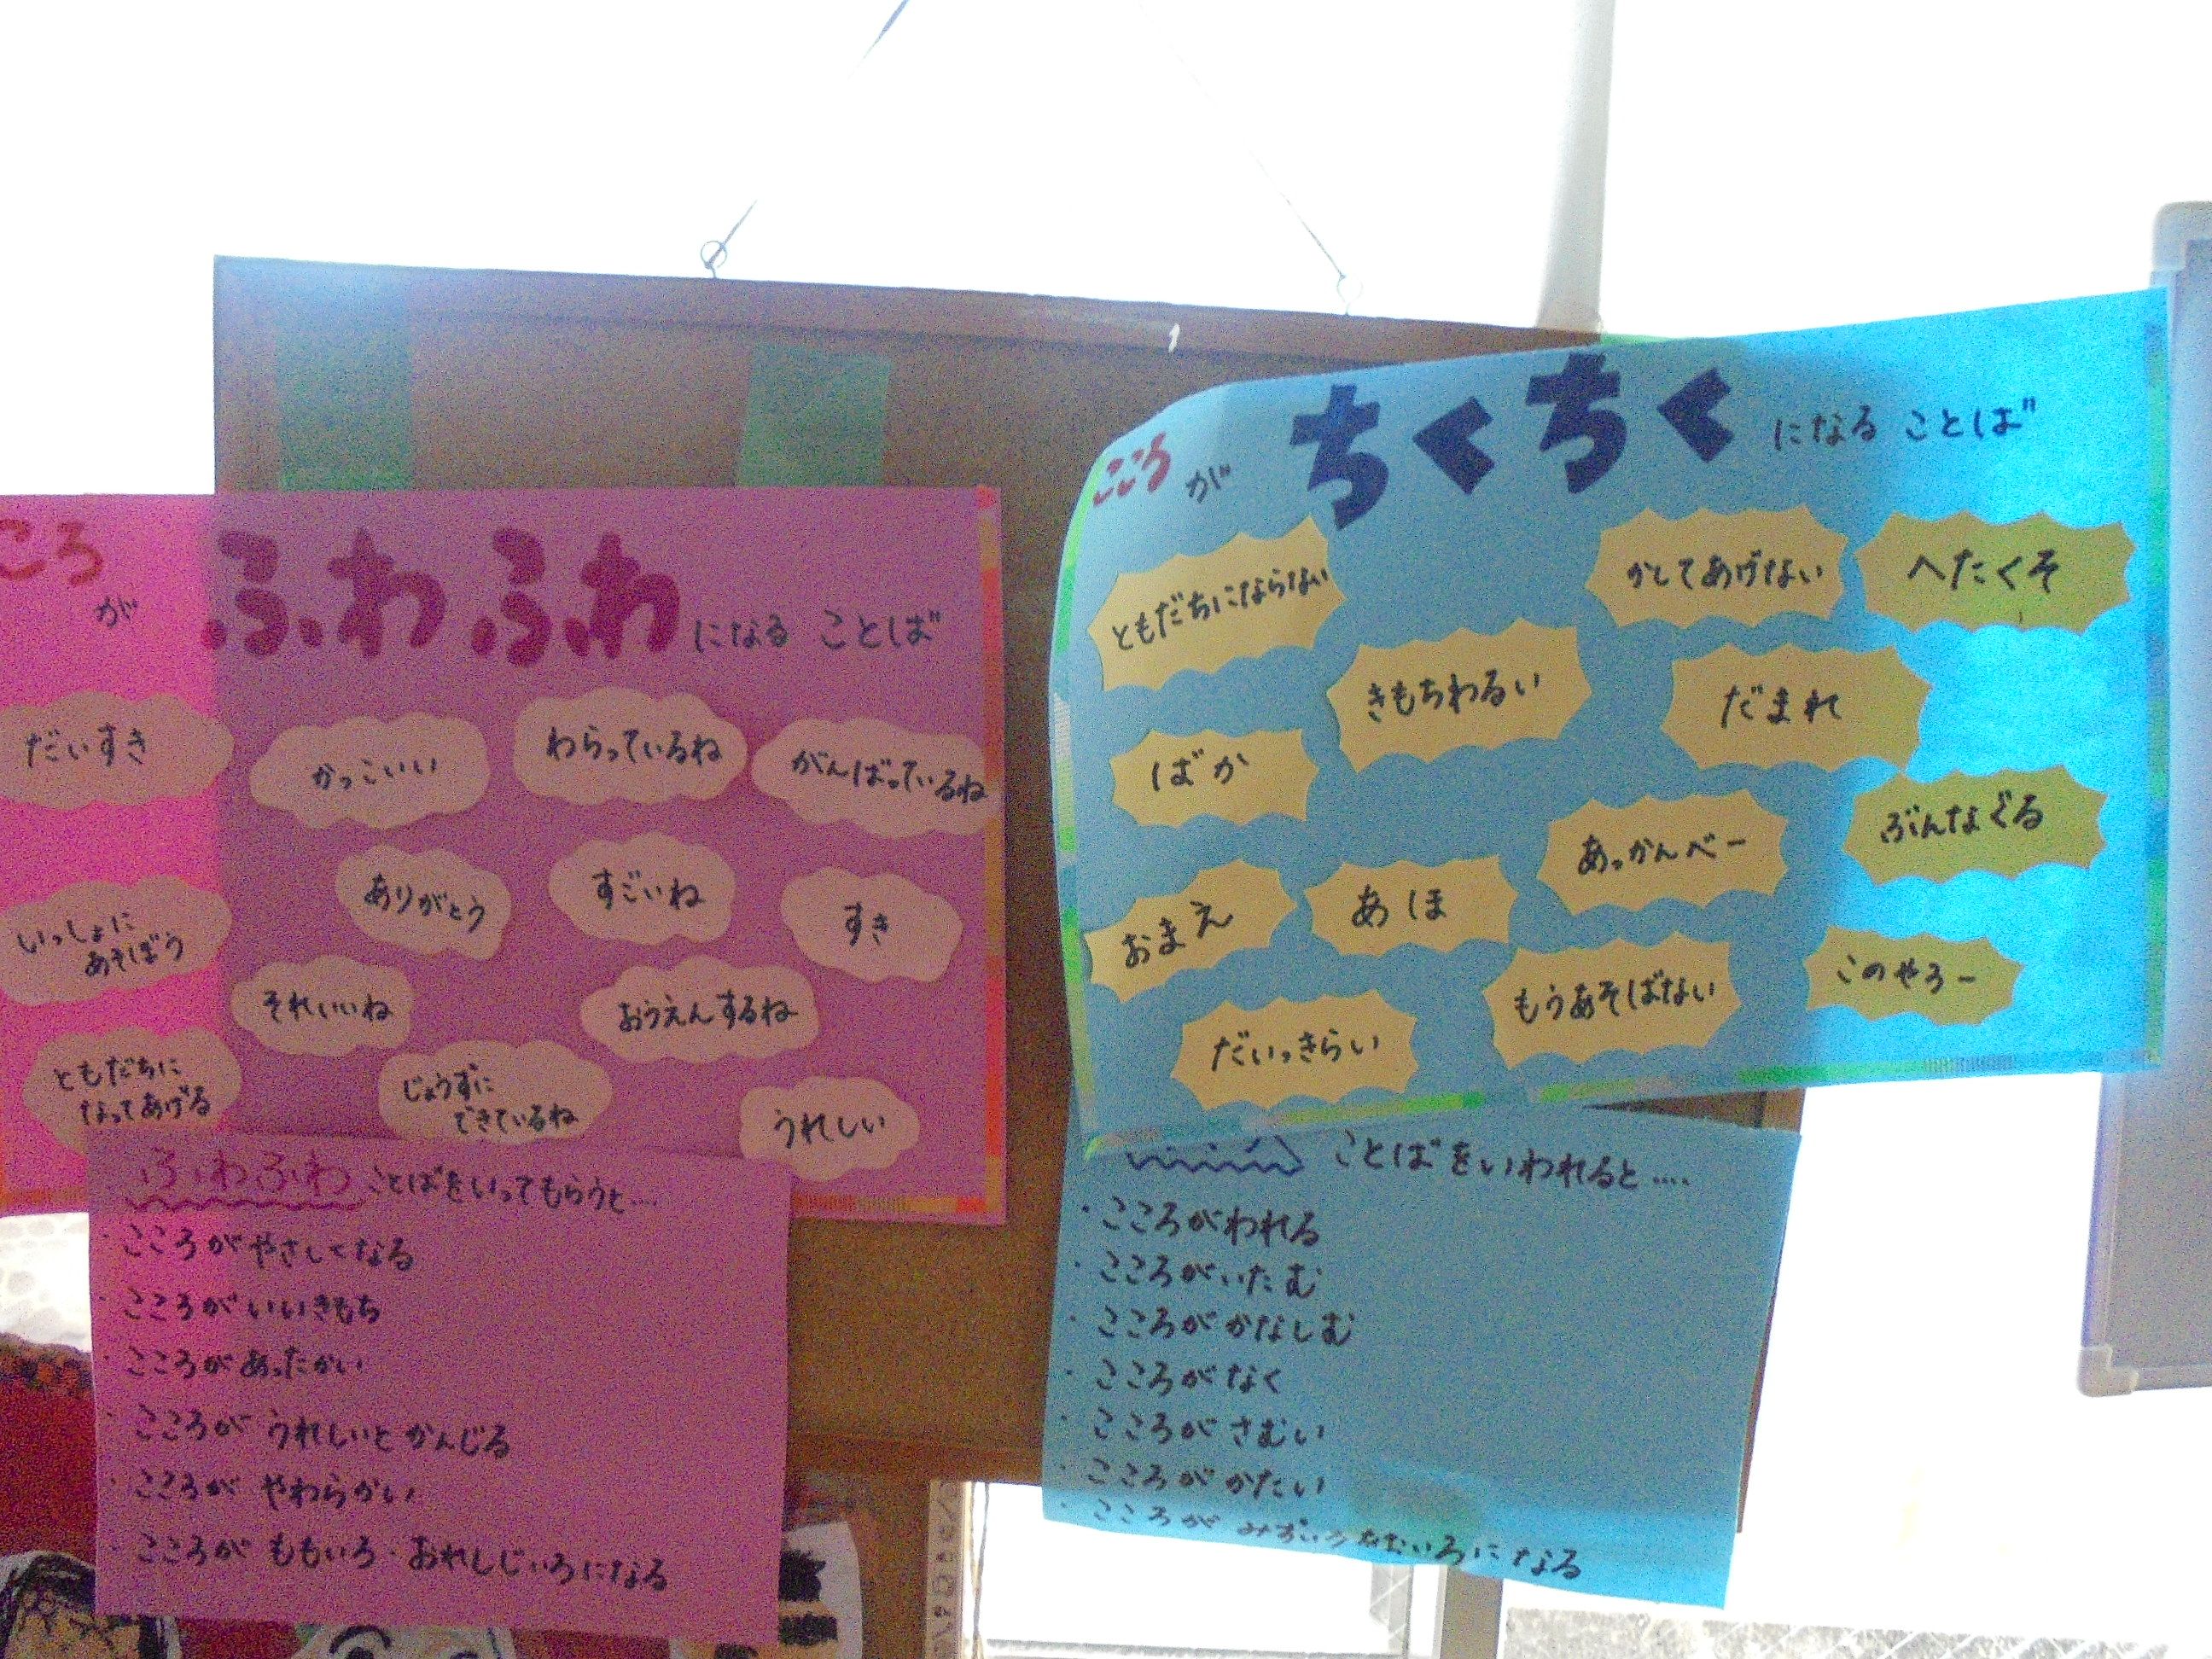 ころ
が
ふわふわ
になる ことば
だいすき
かっこいい
わらっているね
がんばっているね
ありがとう
すごいね
すき
いっしょに
あそぼう
それいいね
おうえんするね
ともだちに
なってあげる
じょうずに
できているね
うれしい
ふわふわ ことばをいってもらうと....
・こころがやさしくなる
・こころがいいきもち
・こころがあったかい
・こころが うれしいとかんじる
・こころが やわらかい
・こころが ももいろ・おれんじいろになる
こころ が ちくちく になる ことば
ともだちにならない
かしてあげない
へたくそ
きもちわるい
だまれ
ばか
あっかんべー
ぶんなぐる
おまえ
あほ
もうあそばない
このやろー
だいっきらい
ことばをいわれると....
・こころがわれる
・こころがいたむ
・こころがかなしむ
・こころがなく
・こころがさむい
・こころがかたい
・こころが になる